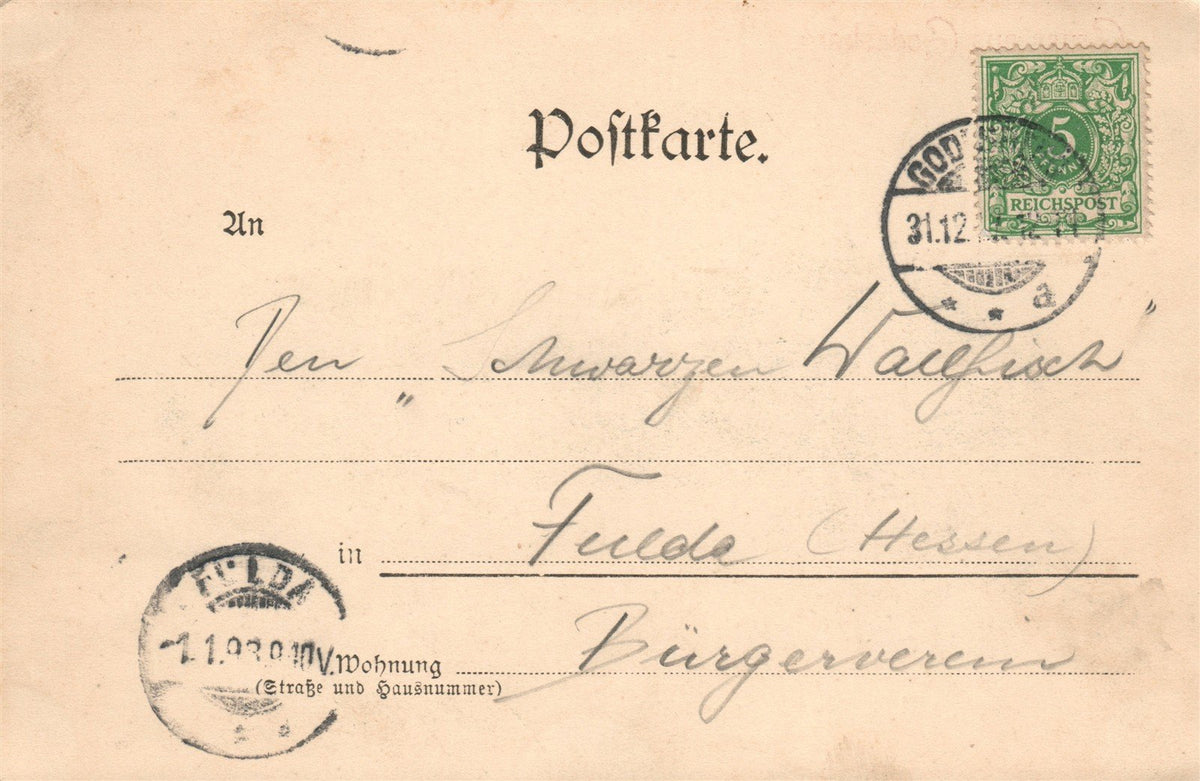 Postkarte.
5
REICHSPOST
31.12.
a
An
Den „Schwarzen Wallfisch"
in Fulda (Hessen)
FULDA
1.1.98.9-10V.
Wohnung Bürgerverein
(Straße und Hausnummer)